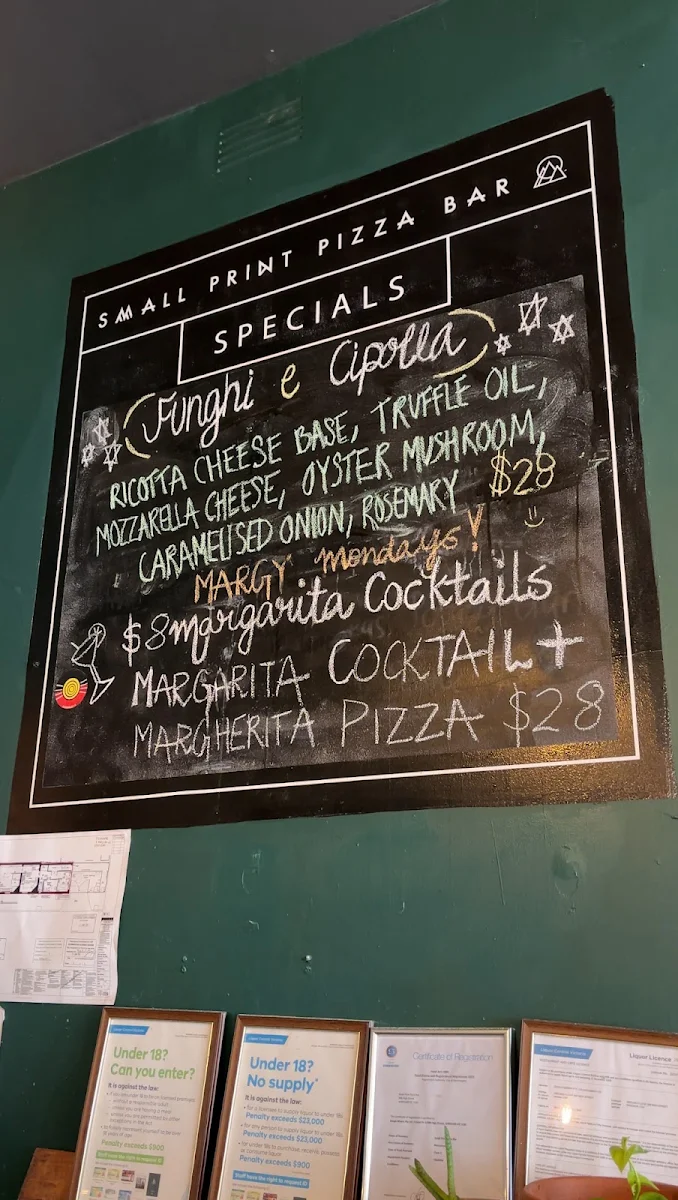 SMALL PRINT PIZZA BAR
SPECIALS
Funghi e Cipolla
RICOTTA CHEESE BASE, TRUFFLE OIL,
MOZZARELLA CHEESE, OYSTER MUSHROOM,
CARAMELISED ONION, ROSEMARY $28
MARGY mondays!
$8 margarita Cocktails
MARGARITA COCKTAIL +
MARGHERITA PIZZA $28
Under 18?
Can you enter?
It is against the law:
Penalty exceeds $900
Under 18?
No supply*
It is against the law:
Penalty exceeds $23,000
Penalty exceeds $23,000
Penalty exceeds $900
Certificate of Registration
Liquor Licence